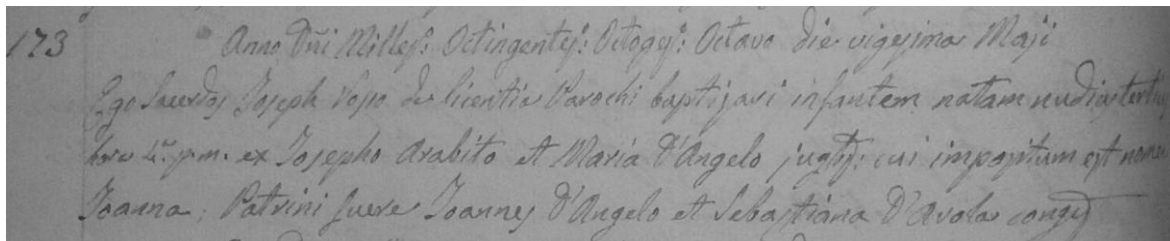 173 Anno Dñi Milles: Octingentes: Octoges: Octavo die vigesima Maji
Ego Sacerdos Joseph de licentia Parochi baptisavi infantem natam nudiustertius
hora p.m. ex Josepho Arabito et Maria D'Angelo jugtis: cui impositum est nomen
Joanna: Patrini fuere Joannes D'Angelo et Sebastiana D'Avola